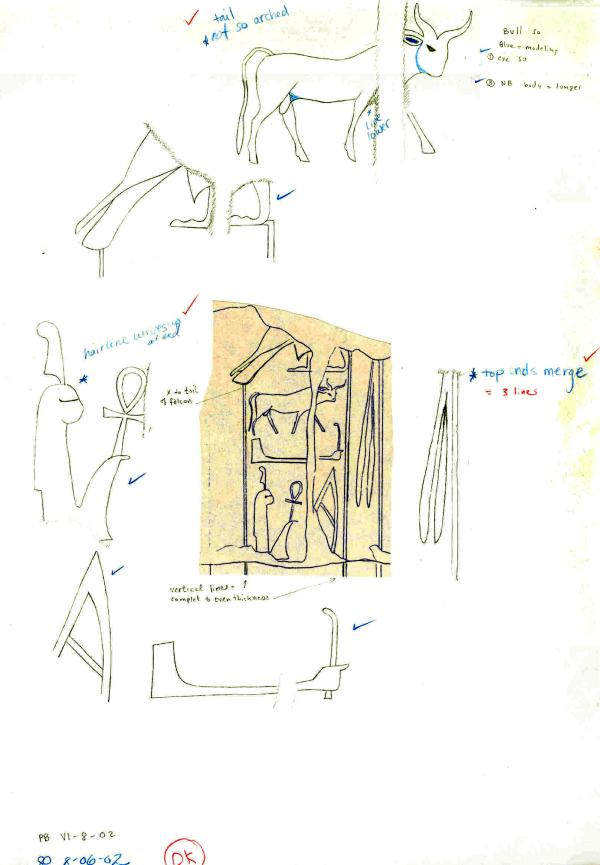 tail
* not so arched
Bull so
Blue = modeling
① eye so
② NB body = longer
* line
lower
hairline curves up
at end
*
x to tail
of falcon
* top ends merge
= 3 lines
vertical lines = ↑
complet & even thickness
PB VI-8-02
8-06-02
OK